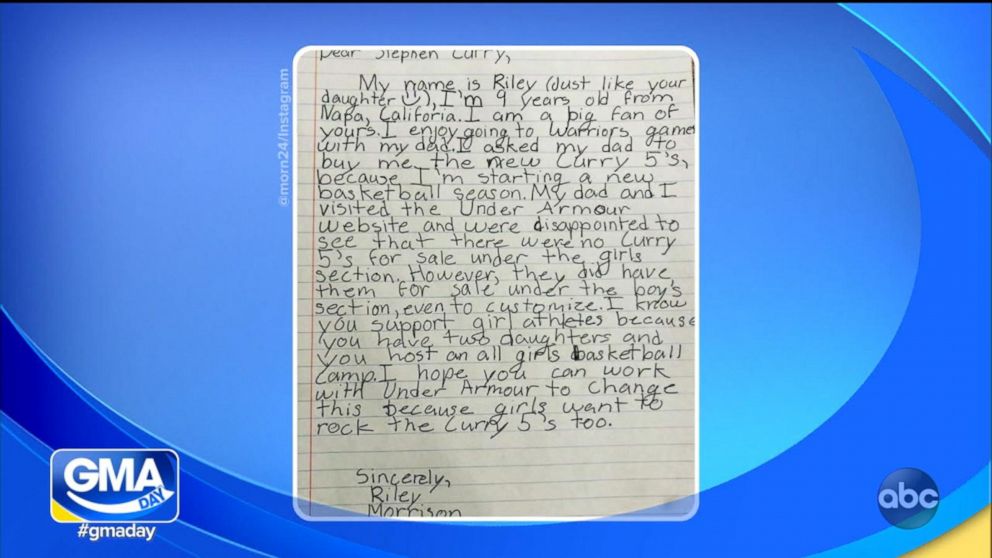 Dear Stephen Curry,
My name is Riley (Just like your
daughter), I'm 9 years old from
Napa, Califoria. I am a big fan of
yours. I enjoy going to Warriors game
with my dad. I asked my dad to
buy me the new Curry 5's,
because I'm starting a new
basketball season. My dad and I
visited the Under Armour
website and were disappointed to
see that there were no Curry
5's for sale under the girls
section. However, they did have
them for sale under the boy's
section, even to customize. I know
you support girl athletes because
you have two daughters and
you host an all girls basketball
camp. I hope you can work
with Under Armour to change
this because girls want to
rock the Curry 5's too.
Sincerely,
Riley
Morrison
@morn24/Instagram
GMA
DAY
#gmaday
abc